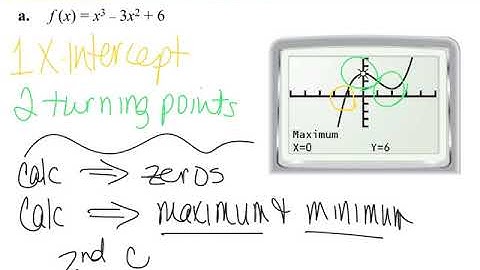 a. f (x) = x³ – 3x² + 6
1 X-Intercept
2 turning points
Maximum
X=0 Y=6
Calc ⇒ zeros
Calc ⇒ maximum & minimum
2nd C